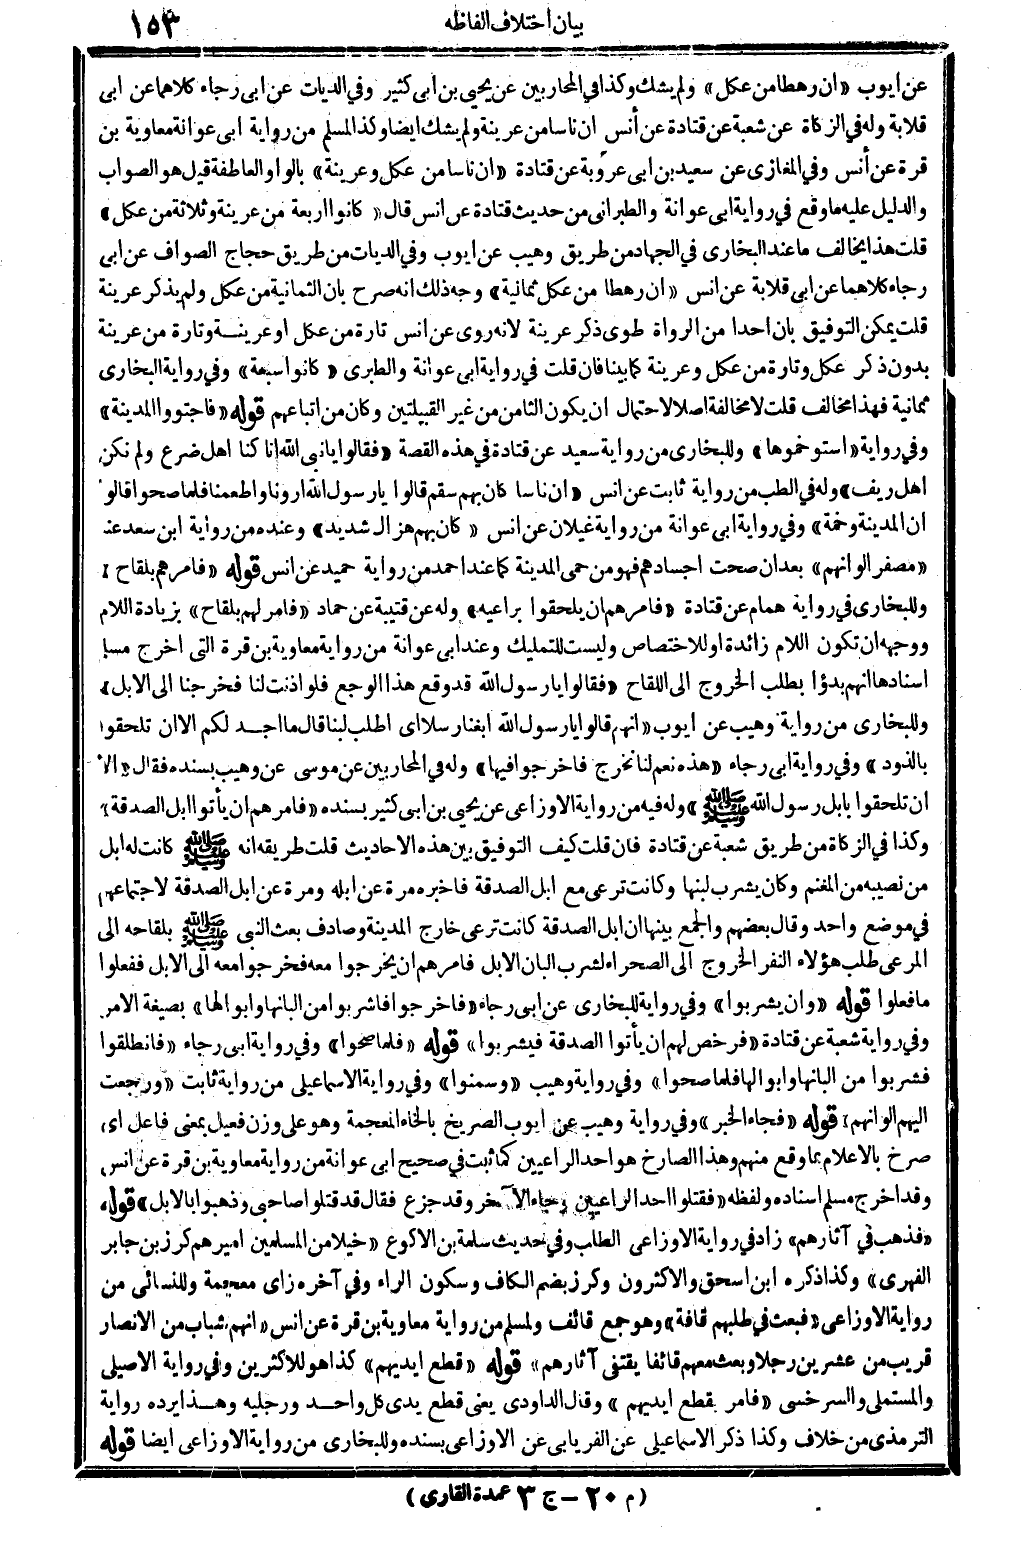 بيان اختلاف الفاظه ١٥٣
عن ايوب «ان رهطا من عكل» ولم يشك وكذا في المحاربين عن يحيى بن ابى كثير وفي الديات عن ابى رجاء كلاهما عن ابى
قلابة وله في الزكاة عن شعبة عن قتادة عن أنس ان ناسا من عرينة ولم يشك ايضا وكذا لمسلم من رواية ابى عوانة معاوية بن
قرة عن أنس وفي المغازى عن سعيد بن ابى عروبة عن قتادة «ان ناسا من عكل وعرينة» بالواو العاطفة قيل هو الصواب
والدليل عليه ما وقع في رواية ابى عوانة والطبرانى من حديث قتادة عن انس قال «كانوا اربعة من عرينة وثلاثة من عكل»
قلت هذا يخالف ما عند البخارى في الجهاد من طريق وهيب عن ايوب وفي الديات من طريق حجاج الصواف عن ابى
رجاء كلاهما عن ابى قلابة عن انس «ان رهطا من عكل ثمانية» وجه ذلك انه صرح بان الثمانية من عكل ولم يذكر عرينة
قلت يمكن التوفيق بان احدا من الرواة طوى ذكر عرينة لانه روى عن انس تارة من عكل او عرينة وتارة من عرينة
بدون ذكر عكل وتارة من عكل وعرينة كما بينا فان قلت في رواية ابى عوانة والطبرى «كانوا سبعة» وفي رواية البخارى
ثمانية فهذا مخالف قلت لا مخالفة اصلا لاحتمال ان يكون الثامن من غير القبيلتين وكان من اتباعهم قوله «فاجتووا المدينة»
وفي رواية «استوخموها» وللبخارى من رواية سعيد عن قتادة في هذه القصة «فقالوا يا نبى الله انا كنا اهل ضرع ولم نكن
اهل ريف» وله في الطب من رواية ثابت عن انس «ان ناسا كان بهم سقم قالوا يا رسول الله اروناواطعمنا فلما صحوا قالوا
ان المدينة وخمة» وفي رواية ابى عوانة من رواية غيلان عن انس «كان بهم هزال شديد» وعنده من رواية ابن سعد عنه
«مصفر الوانهم» بعد ان صحت اجسادهم فهو من حمى المدينة كما عند احمد من رواية حميد عن انس قوله «فامرهم بلقاح»
وللبخارى في رواية همام عن قتادة «فامرهم ان يلحقوا براعيه» وله عن قتيبة عن حماد «فامر لهم بلقاح» بزيادة اللام
ووجهه ان تكون اللام زائدة او للاختصاص وليست للتمليك وعند ابى عوانة من رواية معاوية بن قرة التى اخرج مسلم
اسنادها انهم بدؤا بطلب الخروج الى اللقاح «فقالوا يا رسول الله قد وقع هذا الوجع فلو اذنت لنا فخرجنا الى الابل»
وللبخارى من رواية وهيب عن ايوب «انهم قالوا يا رسول الله ابغنا رسلا اى اطلب لبنا قال ما اجد لكم الا ان تلحقوا
بالذود» وفي رواية ابى رجاء «هذه نعم لنا تخرج فاخرجوا فيها» وله في المحاربين عن موسى عن وهيب بسنده فقال «الا
ان تلحقوا بابل رسول الله ﷺ» وله فيه من رواية الاوزاعى عن يحيى بن ابى كثير بسنده «فامرهم ان يأتوا ابل الصدقة»
وكذا في الزكاة من طريق شعبة عن قتادة فان قلت كيف التوفيق بين هذه الاحاديث قلت طريقه انه ﷺ كانت له ابل
من نصيبه من المغنم وكان يشرب لبنها وكانت ترعى مع ابل الصدقة فاخبره مرة عن ابله ومرة عن ابل الصدقة لاجتماعهم
في موضع واحد وقال بعضهم والجمع بينها ان ابل الصدقة كانت ترعى خارج المدينة وصادف بعث النبى ﷺ بلقاحه الى
المرعى طلب هؤلاء النفر الخروج الى الصحراء لشرب البان الابل فامرهم ان يخرجوا معه فخرجوا معه الى الابل ففعلوا
ما فعلوا قوله «وان يشربوا» وفي رواية للبخارى عن ابى رجاء «فاخرجوا فاشربوا من البانها وابوالها» بصيغة الامر
وفي رواية شعبة عن قتادة «فرخص لهم ان يأتوا الصدقة فيشربوا» قوله «فلما صحوا» وفي رواية ابى رجاء «فانطلقوا
فشربوا من البانها وابوالها فلما صحوا» وفي رواية وهيب «وسمنوا» وفي رواية الاسماعيلى من رواية ثابت «ورجعت
اليهم الوانهم» قوله «فجاء الخبر» وفي رواية وهيب عن ايوب الصريخ بالخاء المعجمة وهو على وزن فعيل بمعنى فاعل اى
صرخ بالاعلام بما وقع منهم وهذا الصارخ هو احد الراعيين كما ثبت في صحيح ابى عوانة من رواية معاوية بن قرة عن انس
وقد اخرج مسلم اسناده ولفظه «فقتلوا احد الراعيين وجاء الآخر وقد جزع فقال قد قتلوا صاحبى وذهبوا بالابل» قوله
«فذهب في آثارهم» زاد في رواية الاوزاعى الطلب وفي حديث سلمة بن الاكوع «خيلا من المسلمين اميرهم كرز بن جابر
الفهرى» وكذا ذكره ابن اسحق والاكثرون وكرز بضم الكاف وسكون الراء وفي آخره زاى معجمة وللنسائى من
رواية الاوزاعى «فبعث في طلبهم قافة» وهو جمع قائف ولمسلم من رواية معاوية بن قرة عن انس «انهم شباب من الانصار
قريب من عشرين رجلا وبعث معهم قائفا يقتفى آثارهم» قوله «قطع ايديهم» كذا هو للاكثرين وفي رواية الاصيلى
والمستملى والسرخسى «فامر بقطع ايديهم» وقال الداودى يعنى قطع يدى كل واحد ورجليه وهذا يرده رواية
الترمذى من خلاف وكذا ذكر الاسماعيلى عن الفريابى عن الاوزاعى بسنده وللبخارى من رواية الاوزاعى ايضا قوله
(م ٢٠ – ج ٣ عمدة القارى)